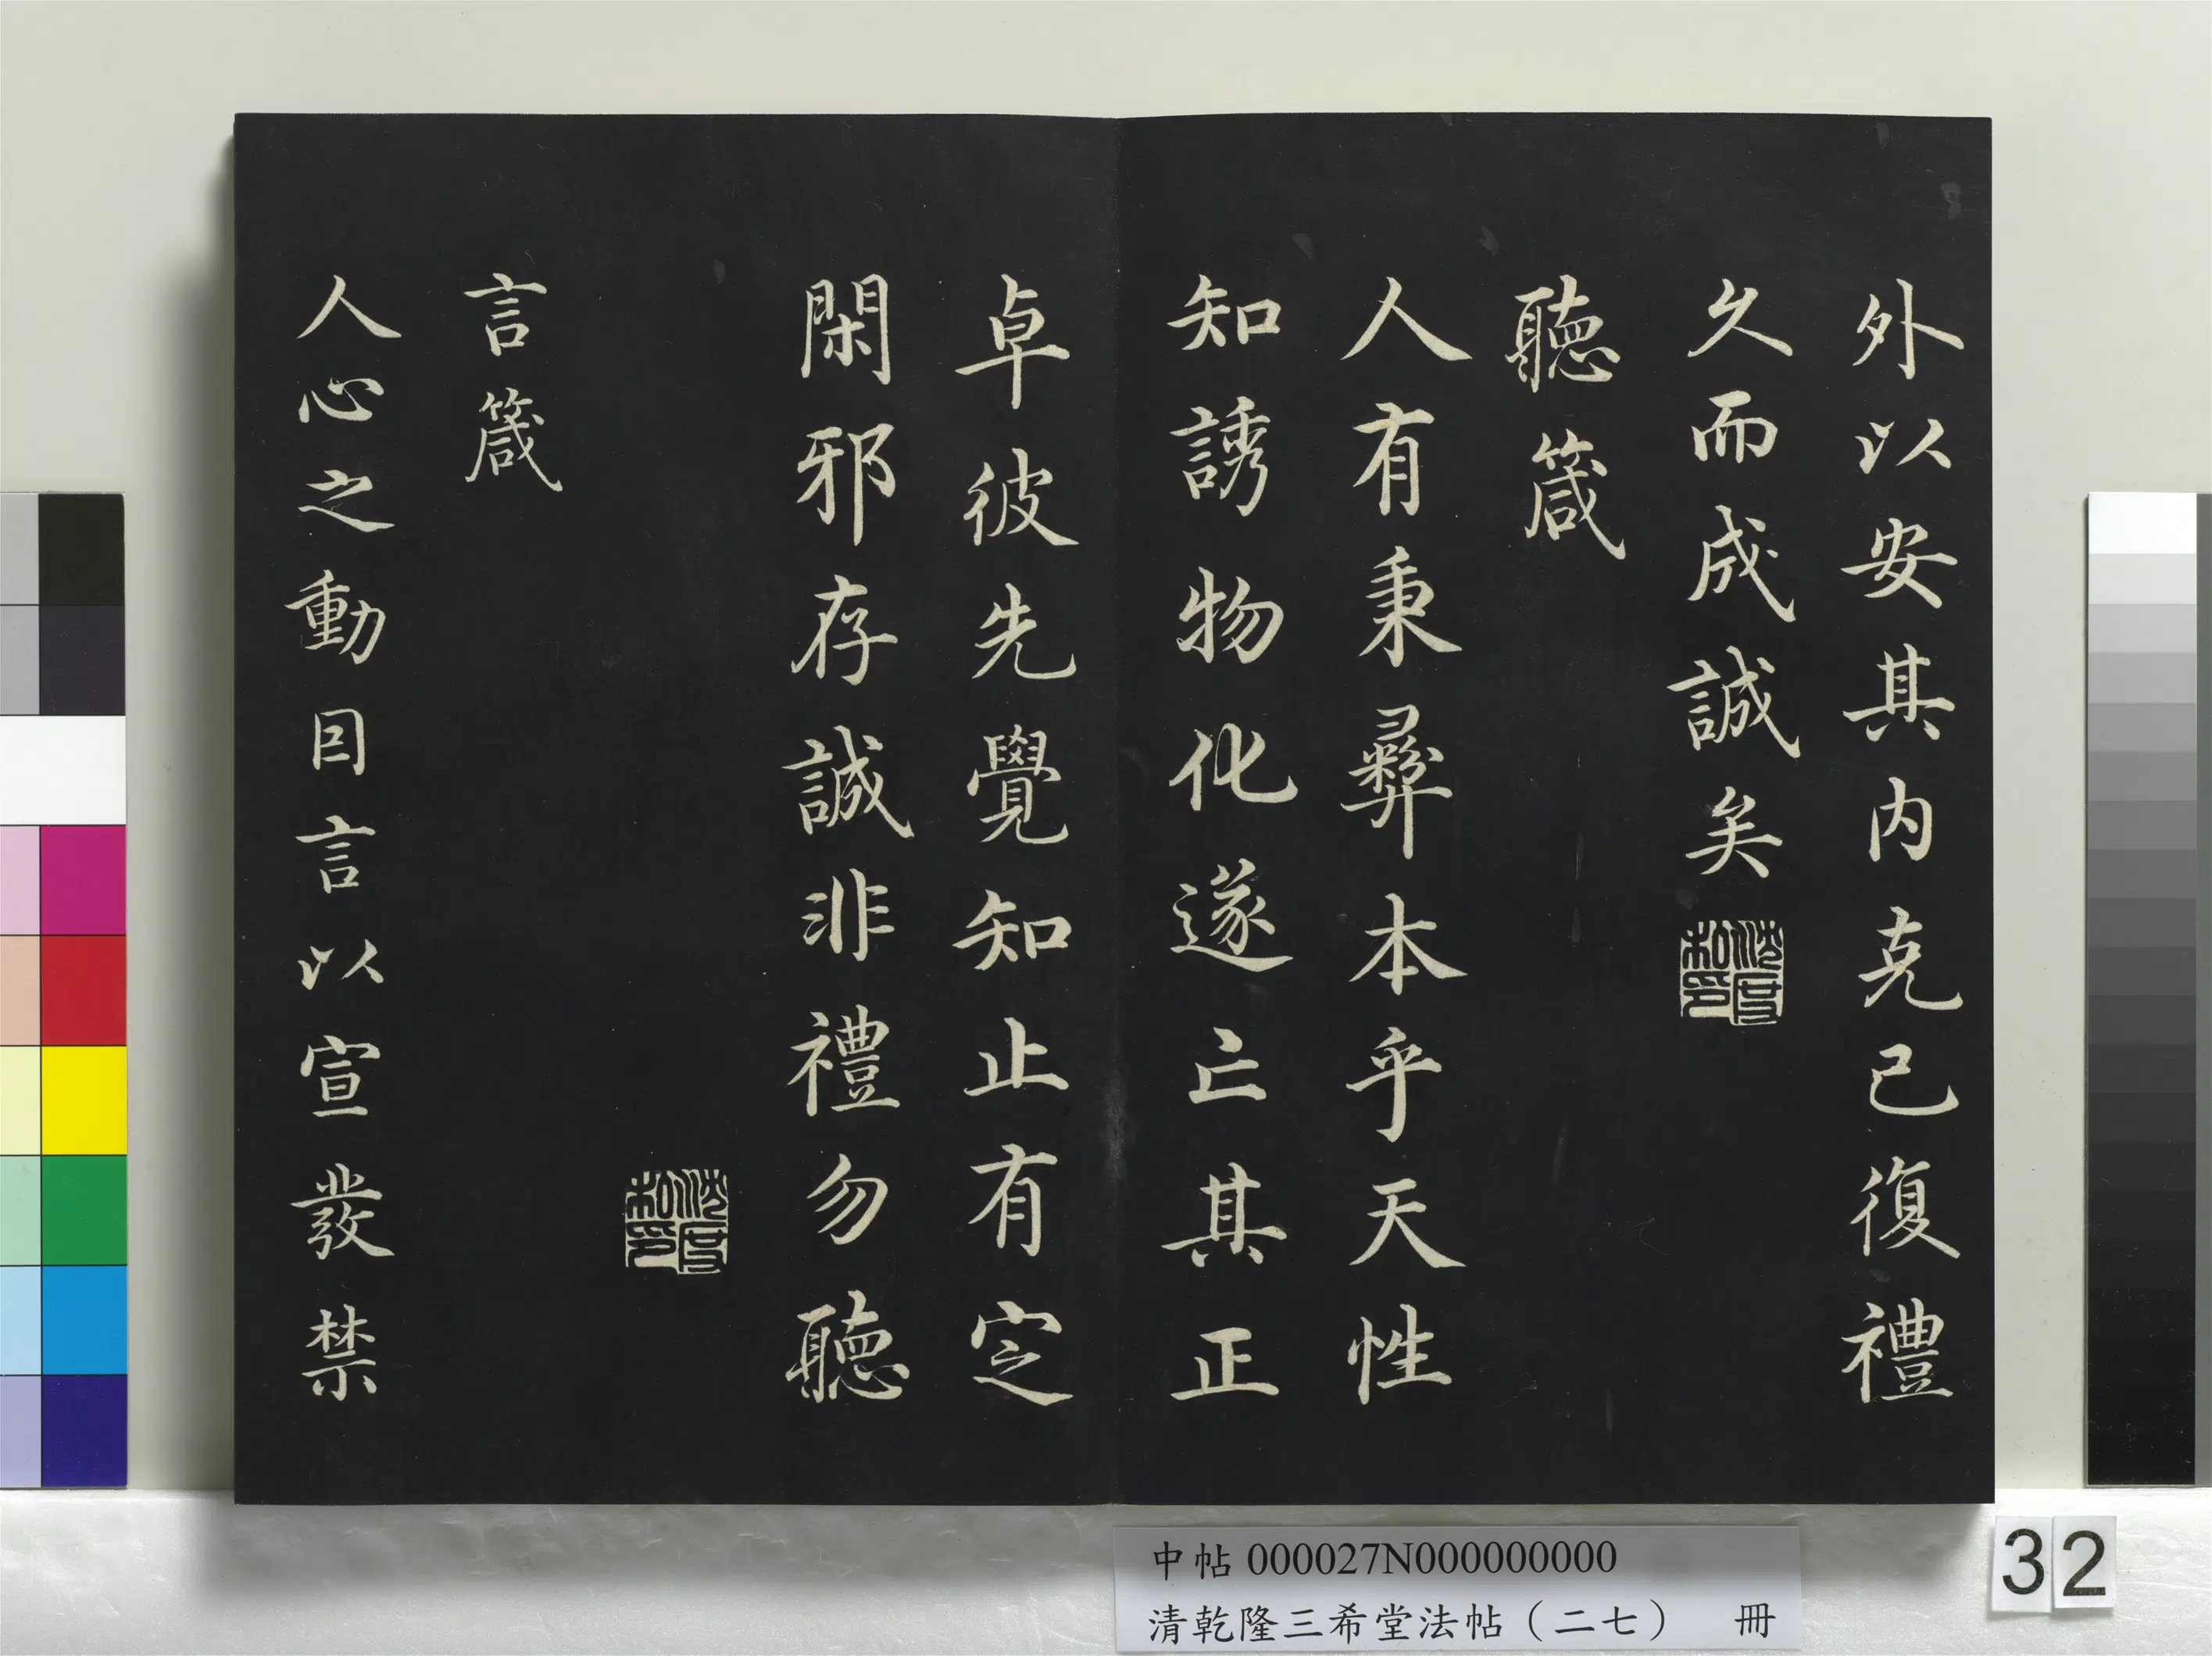 外以安其内克己復禮
久而成誠矣
沈度私印
聽箴
人有秉彝本乎天性
知誘物化遂亡其正
卓彼先覺知止有定
閑邪存誠非禮勿聽
沈度私印
言箴
人心之動囙言以宣發禁
中帖 000027N000000000
清乾隆三希堂法帖（二七） 冊
32